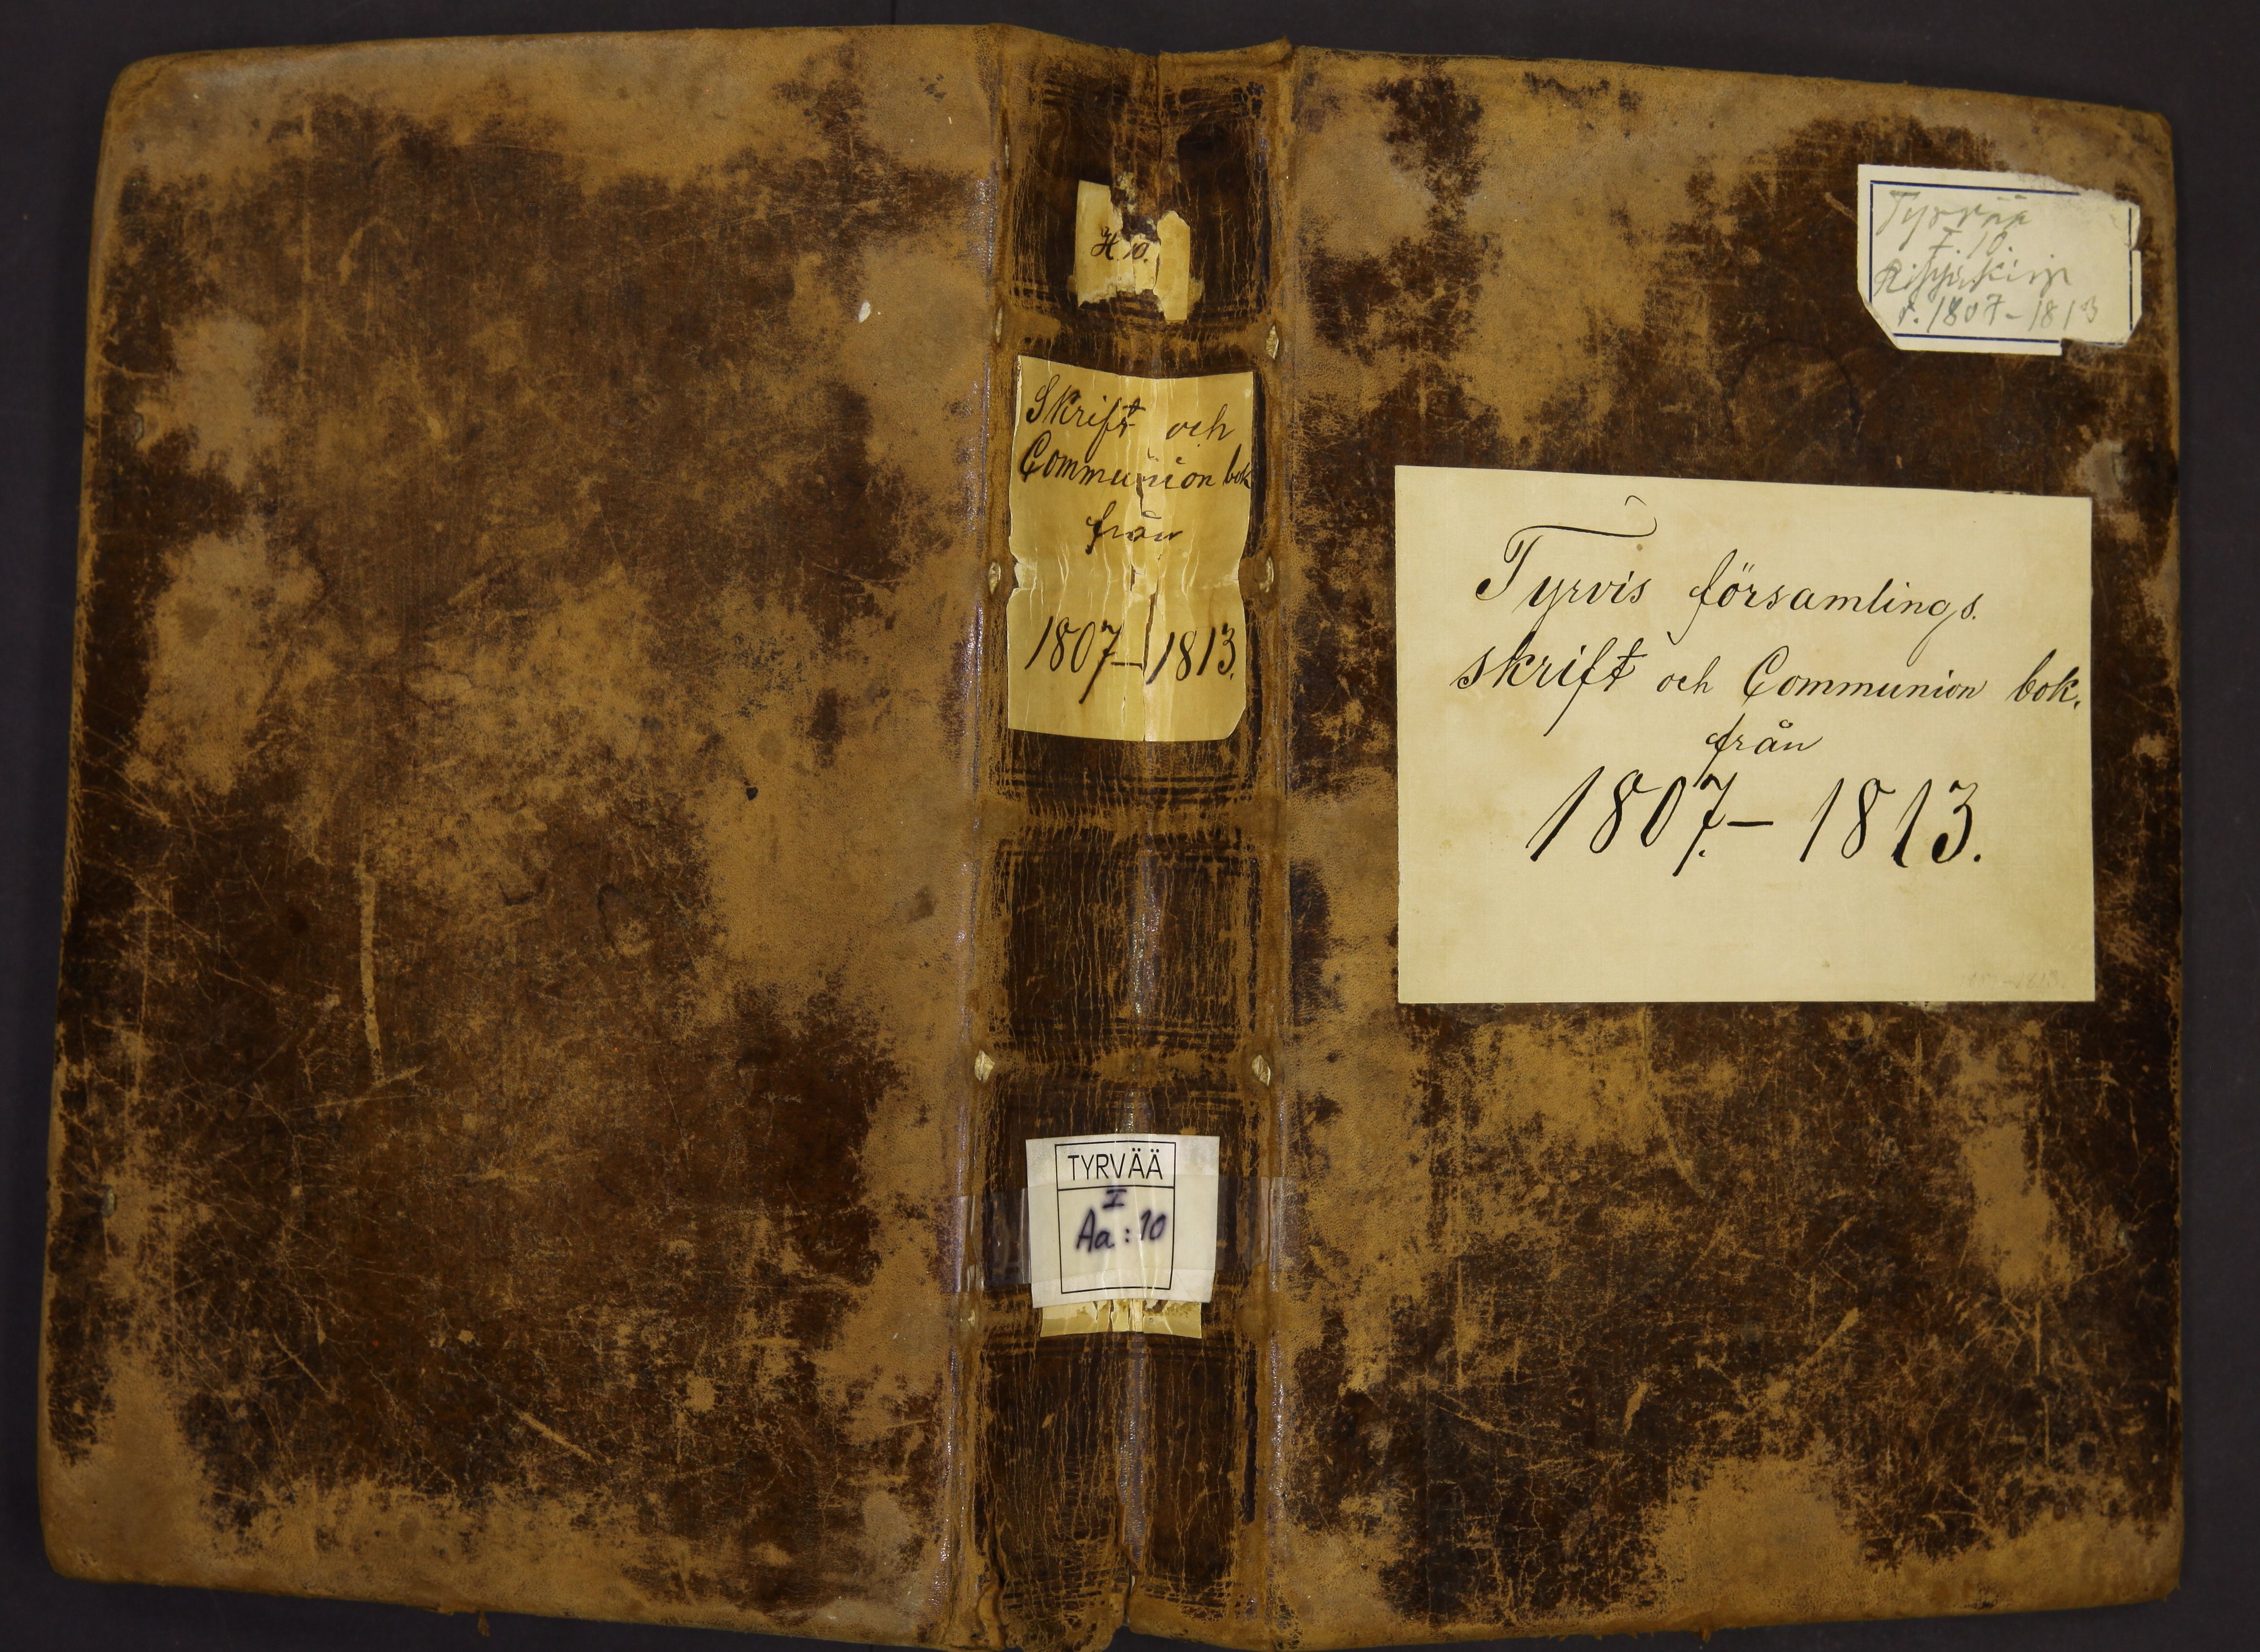 H. 10.
Skrift och
Communion bok
från
1807-1813.
TYRVÄÄ
I
Aa:10
Tyrvää
I. 10.
Rippikirja
v. 1807-1813
Tyrvis församlings.
skrift och Communion bok.
från
1807.-1813.